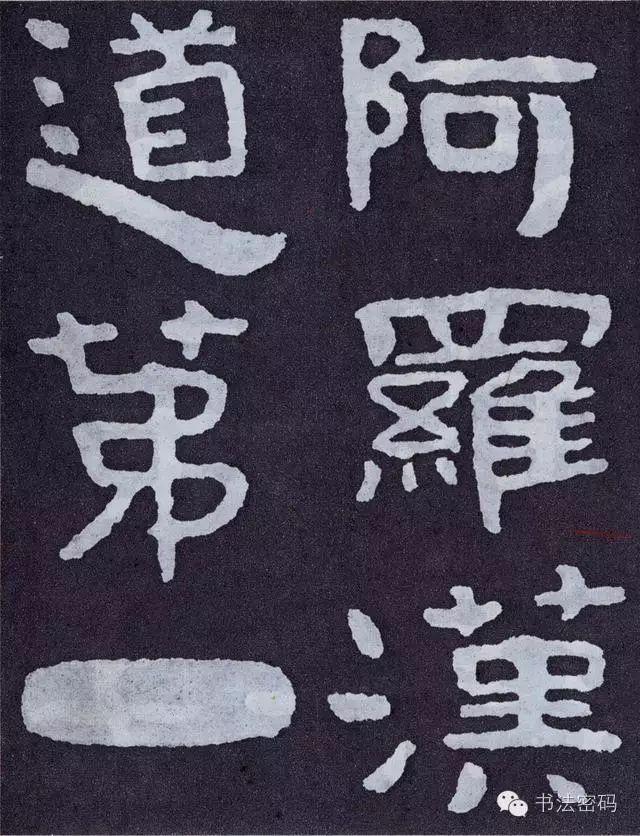 阿羅漢
道苐一
书法密码